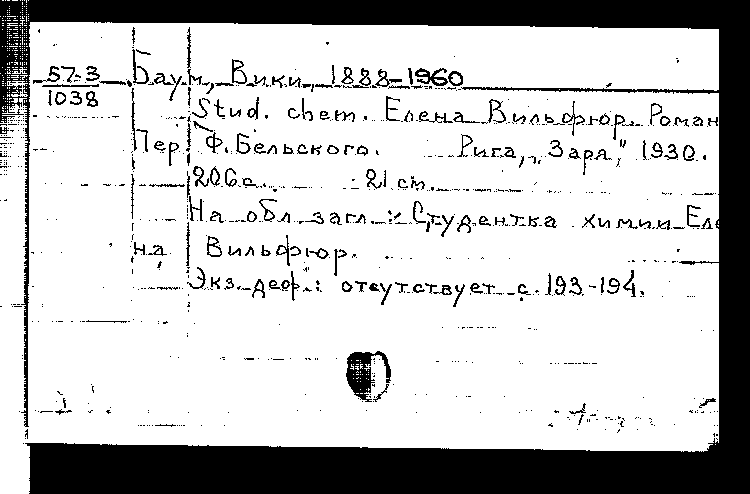 57-3 Баум, Вики, 1888-1960
1038
Stud. chem. Елена Вильфюр. Роман
Пер. Ф. Бельского. Рига, „Заря", 1930.
206 с. 21 см.
На обл. загл.: Студентка химии Еле
на Вильфюр.
Экз. деф.: отсутствует с. 193-194.